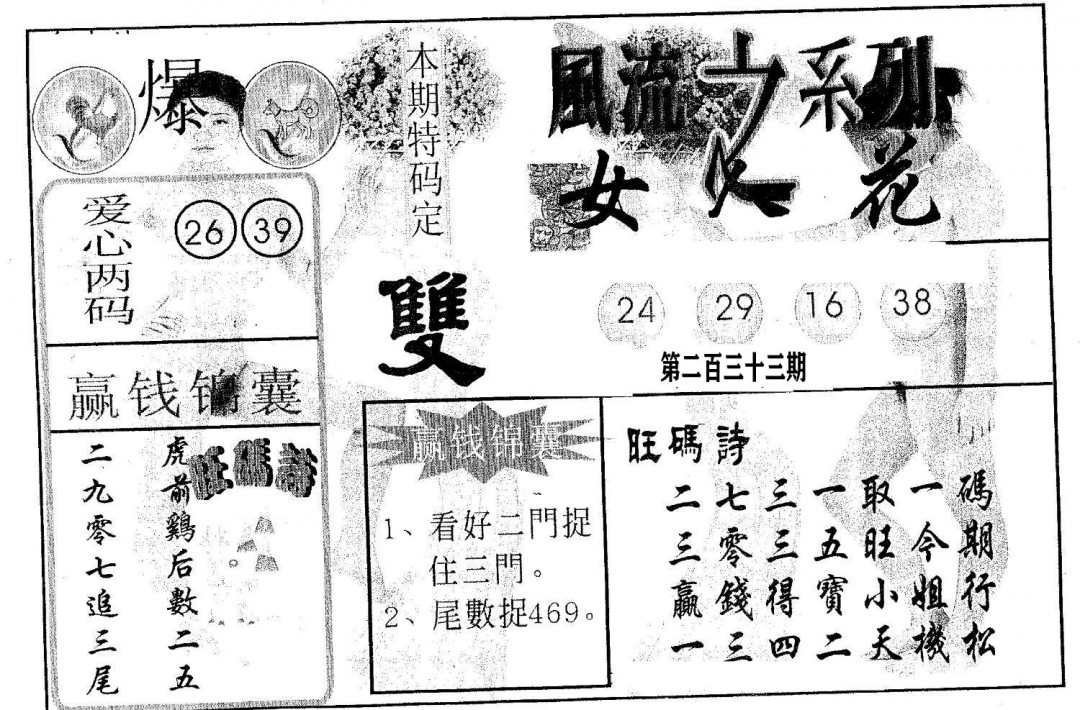 爆
本期特码定
雙
風流之系列
女 花
爱心两码
26 39
24 29 16 38
第二百三十三期
赢钱锦囊
旺碼詩
虎前鷄后數二五
二九零七追三尾
赢钱锦囊
1、看好二門捉
住三門。
2、尾數捉469。
旺碼詩
二七三一取一碼
三零三五旺今期
贏錢得寶小姐行
一三四二天機松